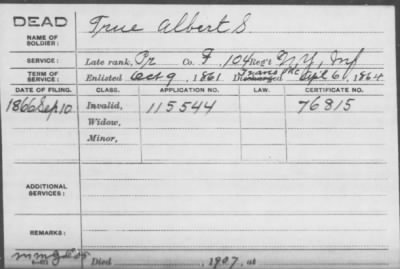 DEAD
NAME OF SOLDIER: True Albert S.
SERVICE: Late rank, Pr Co. F, 104 Reg't N.Y. Inf
TERM OF SERVICE: Enlisted Oct 9, 1861 Discharged Trans VRC Apl 6, 1864
DATE OF FILING. CLASS. APPLICATION NO. LAW. CERTIFICATE NO.
1866 Sep 10 Invalid, 115544 76815
Widow,
Minor,
ADDITIONAL SERVICES:
REMARKS:
Died 1907, at